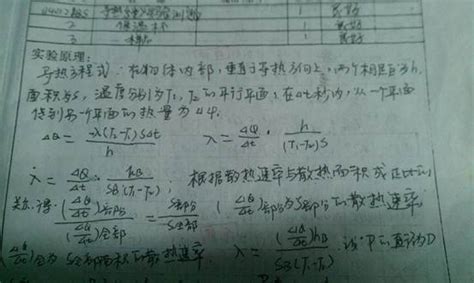 2 保温杯 1 良好
3 样品 1 良好
实验原理:
导热方程式: 在物体内部,垂直于导热方向上,两个相距为h,
面积为S,温度分别为T₁,T₂的平行平面,在Δt秒内,从一个平面
传到另一个平面的热量为ΔQ.
ΔQ = -λ(T₂-T₁)SΔt / h λ = ΔQ/Δt · h/((T₁-T₂)S)
λ = ΔQ/Δt · hB/(SB(T₁-T₂)) 根据散热速率与散热面积成正比的
关系,得: (ΔQ/Δt)部分/(ΔQ/Δt)全部 = S部分/S全部 (ΔQ/Δt)部分为S部分的散热速率
(ΔQ/Δt)全部为S全部面积的散热速率. λ = (ΔQ/Δt)hB/(SB(T₁-T₂)) 设P的直径为D